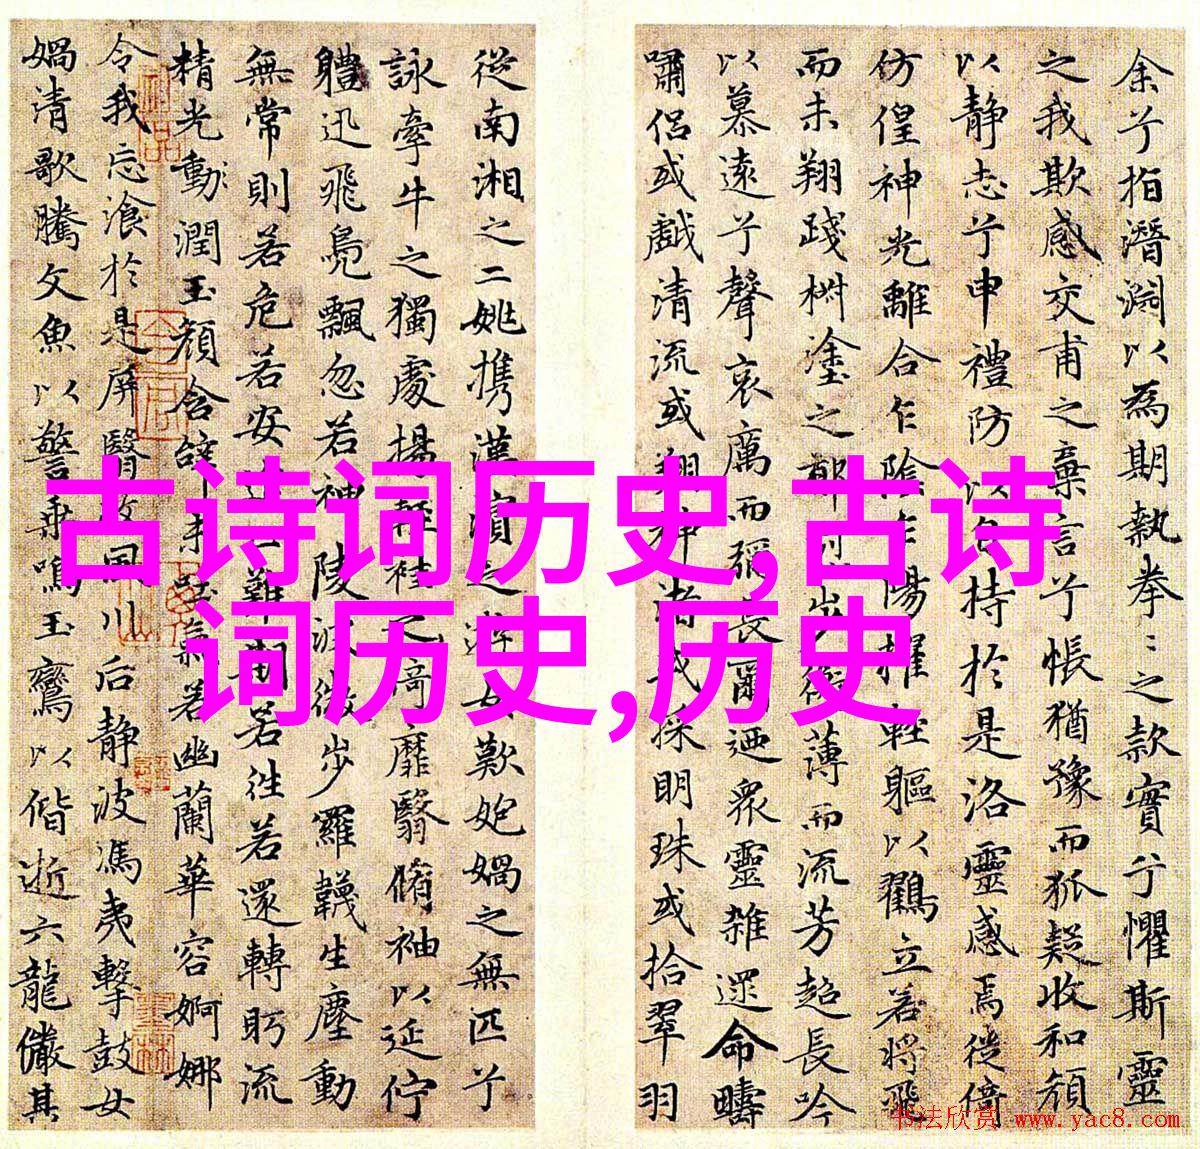 余兮指潛淵以為期執拳〻之款實兮懼斯靈
之我欺感交甫之棄言兮悵猶豫而狐疑收和顏
以静志兮申禮防以自持於是洛靈感焉徙倚
仿偟神光離合乍陰乍陽擢輕軀以鸖立若將飛
而未翔踐椒塗之郁步蘅薄而流芳超長吟
以慕遠兮聲哀厲而彌長爾迺衆靈雜遝命疇
嘯侶或戲清流或翔神渚或採明珠或拾翠羽
從南湘之二姚攜漢濱之游女歎匏媧之無匹兮
詠牽牛之獨處揚輕袿之猗靡翳脩袖以延佇
體迅飛鳧飄忽若神陵波微步羅韈生塵動
無常則若危若安進止難期若往若還轉眄流
精光動潤玉顏含辭未吐氣若幽蘭華容婀娜
令我忘飡於是屏翳收風川后静波馮夷擊鼓女
媧清歌騰文魚以警乘鳴玉鸞以偕逝六龍儼其
古诗词历史,古诗
词历史,历史
书法欣赏 www.yac8.com